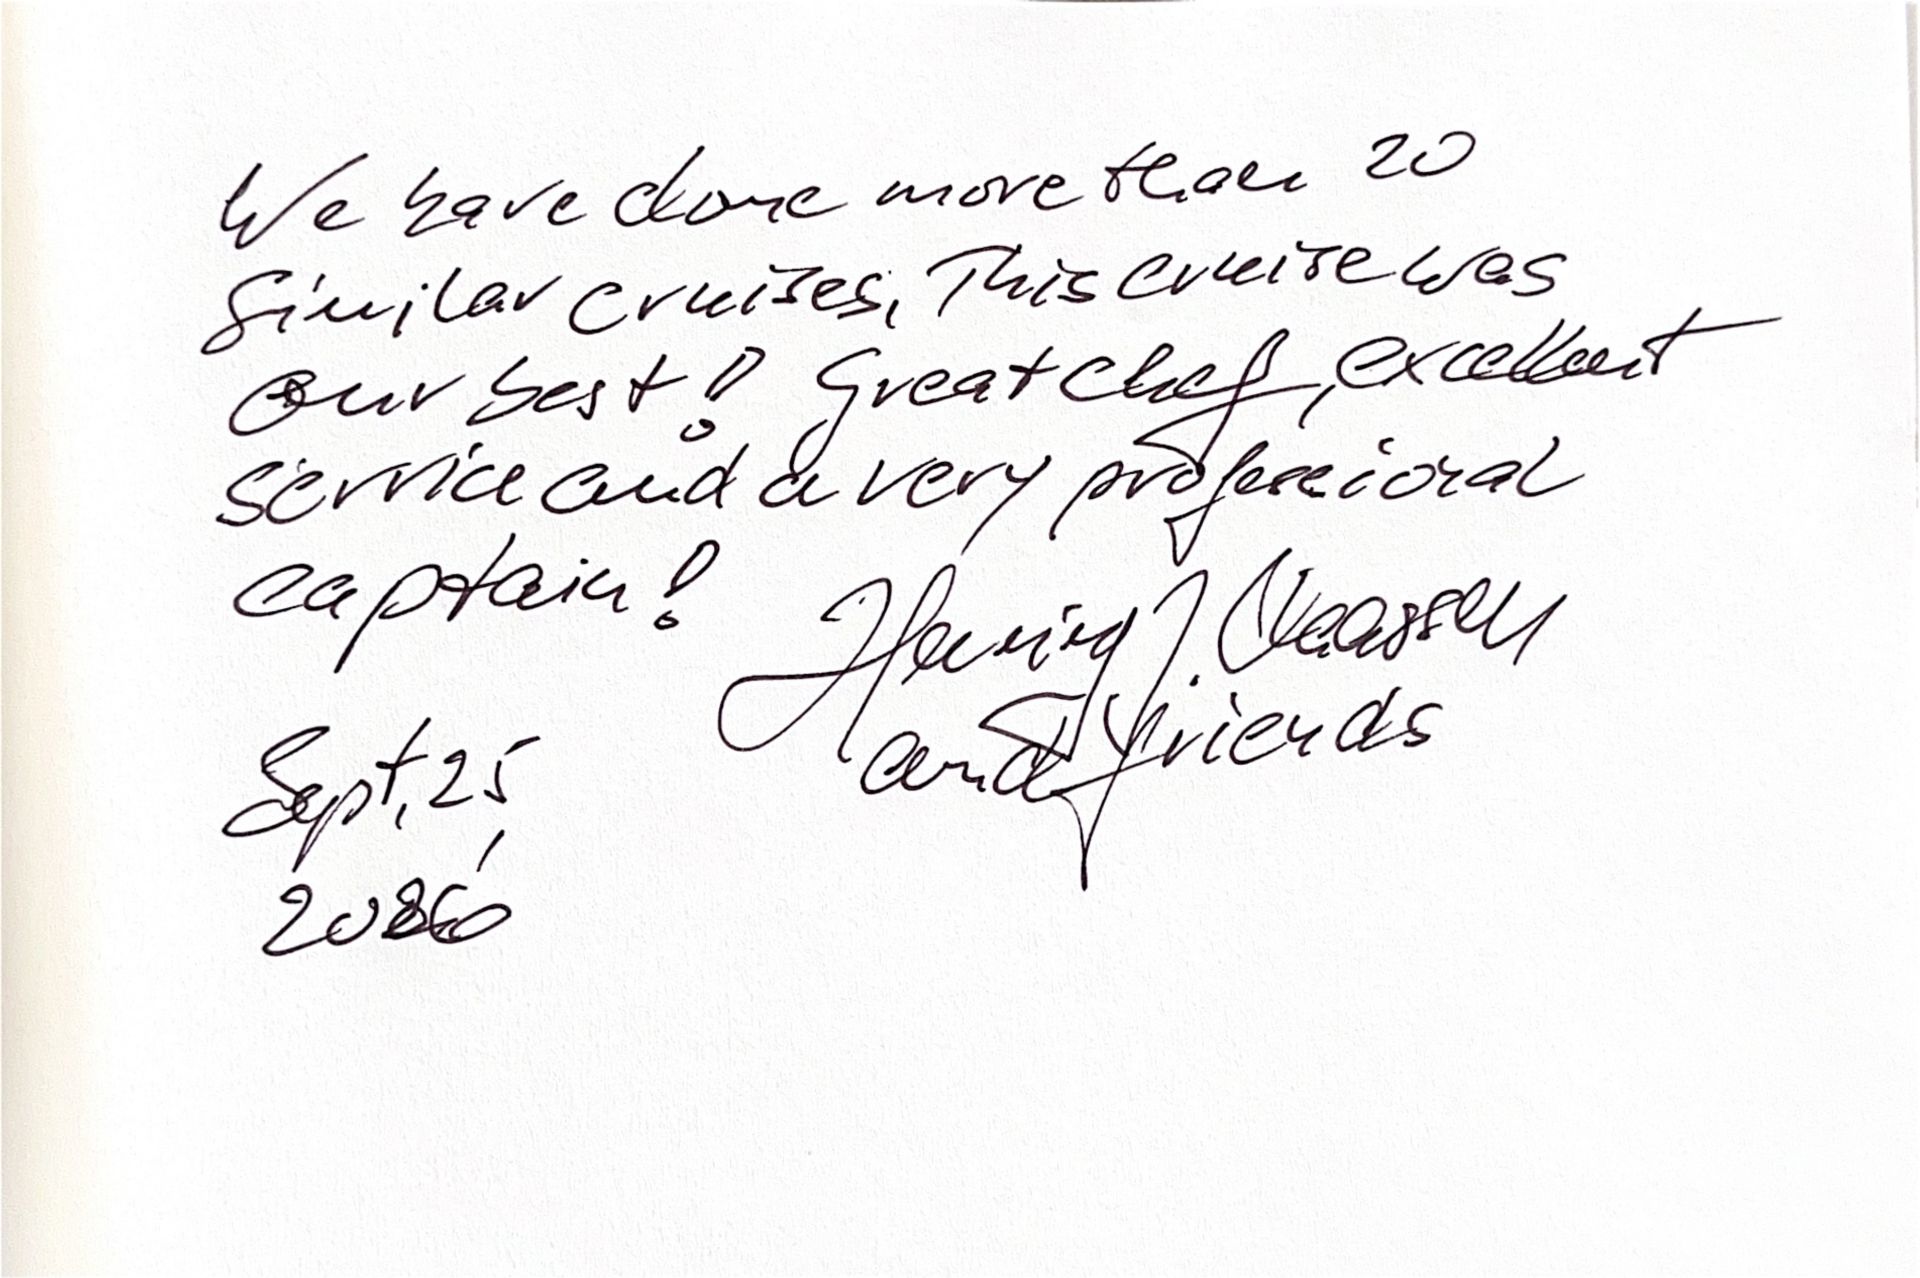 We have done more than 20
similar cruises, This cruise was
our best! Great chef, excellent
service and a very professional
captain!
and friends
Sept, 25,